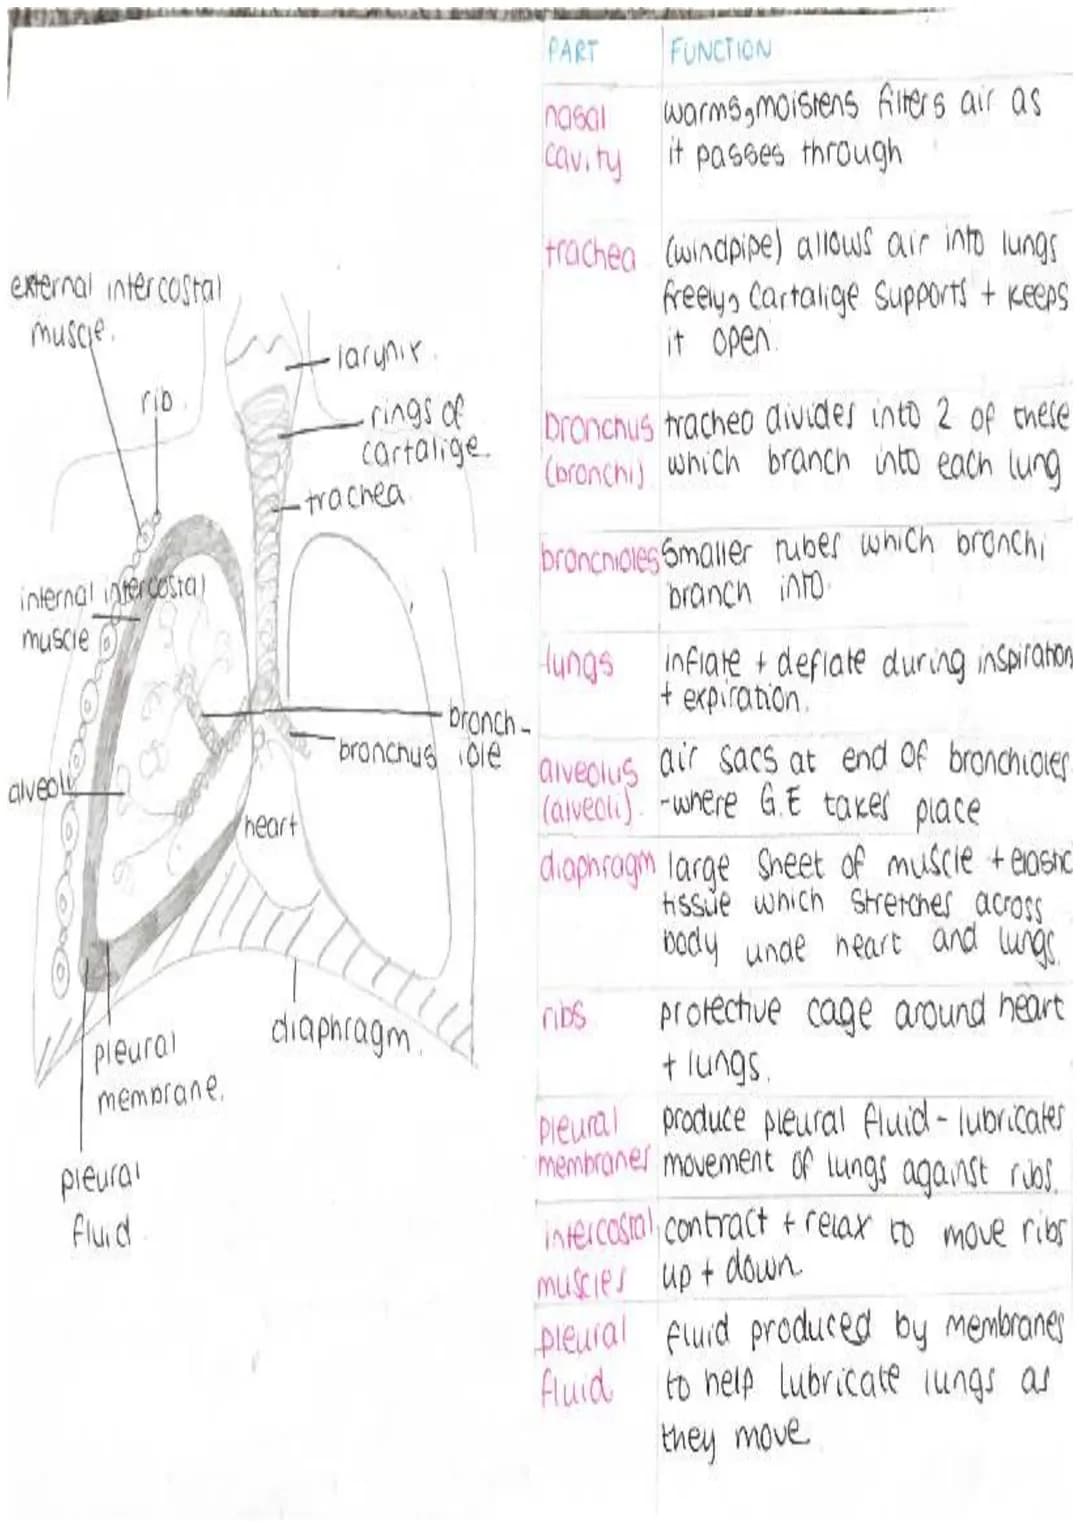 external intercostal
muscle.
rib.
larynix.
rings of
cartalige.
trachea
internal intercostal
muscle
bronch-
iole
bronchus
alveoli
heart
diaphragm.
pleural
membrane.
pleural
fluid
PART FUNCTION
nasal warms, moistens filters air as
cavity it passes through
trachea (windpipe) allows air into lungs
freely, Cartalige supports + keeps
it open.
bronchus trachea divides into 2 of these
(bronchi) which branch into each lung
bronchioles Smaller tubes which bronchi
branch into.
lungs inflate + deflate during inspiration
+ expiration.
alveolus air sacs at end of bronchioles
(alveoli). -where G.E takes place
diaphragm large sheet of muscle + elastic
tissue which stretches across
body unde heart and lungs.
ribs protective cage around heart
+ lungs.
pleural produce pleural fluid - lubricates
membranes movement of lungs against ribs.
intercostal contract + relax to move ribs
muscles up + down
pleural fluid produced by membranes
fluid to help lubricate lungs as
they move